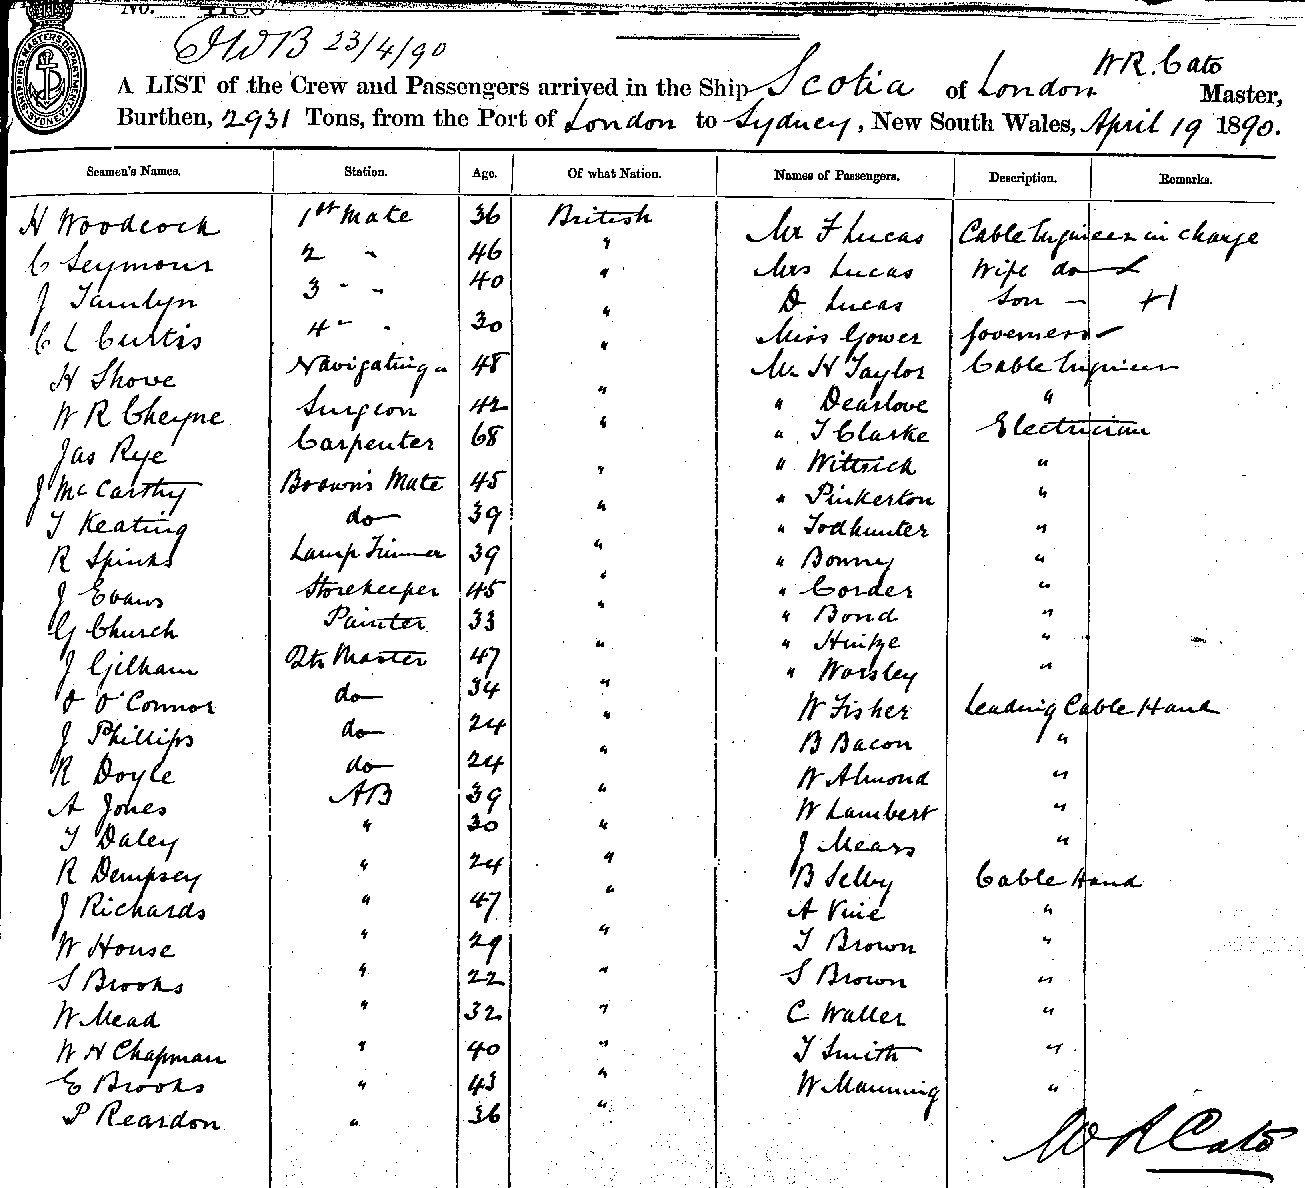 No. 4180
JWB 23/4/90
A LIST of the Crew and Passengers arrived in the Ship Scotia of London W R. Cato Master,
Burthen, 2931 Tons, from the Port of London to Sydney, New South Wales, April 19 1890.
Seamen's Names. Station. Age. Of what Nation. Names of Passengers. Description. Remarks.
H Woodcock 1st Mate 36 British Mr F Lucas Cable Engineer in charge
C Seymour 2 " 46 " Mrs Lucas Wife do
J Tamlyn 3 " " 40 " D Lucas Son — +1
C L Curtis 4 " " 30 " Miss Gower Governess
H Shove Navigating " 48 " Mr H Taylor Cable Engineer
W R Cheyne Surgeon 42 " " Dearlove "
Jas Rye Carpenter 68 " " T Clarke Electrician
J McCarthy Boswn's Mate 45 " " Wittrick "
T Keating do 39 " " Pinkerton "
R Spinks Lamp Trimmer 39 " " Todhunter "
J Evans Storekeeper 45 " " Bonny "
G Church Painter 33 " " Corder "
J Gilham Qtr Master 47 " " Bond "
O'Connor do 34 " " Hintze "
J Phillips do 24 " " Worsley "
R Doyle do 24 " W Fisher Leading Cable Hand
A Jones AB 39 " B Bacon "
T Daley " 30 " W Almond "
R Dempsey " 24 " W Lambert "
J Richards " 47 " J Mears "
W House " 29 " B Selby Cable Hand
S Brooks " 22 " A Vine "
W Mead " 32 " T Brown "
W H Chapman " 40 " S Brown "
E Brooks " 43 " C Waller "
P Reardon " 36 " T Smith "
W Manning "
W R Cato